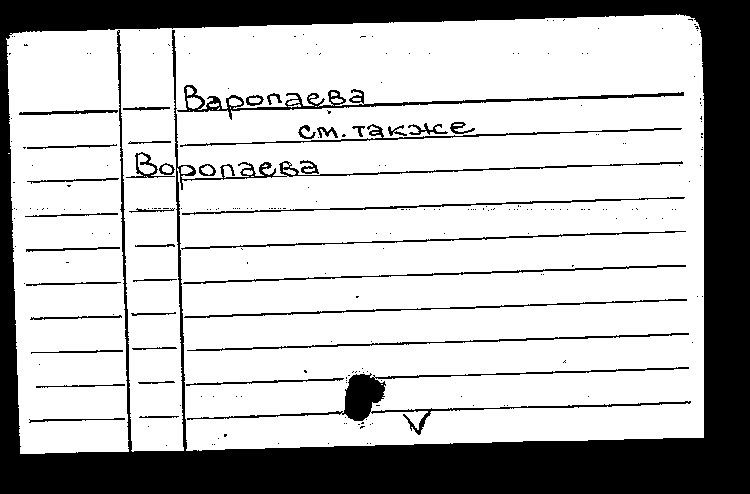 Варопаева
см. также
Воропаева
V